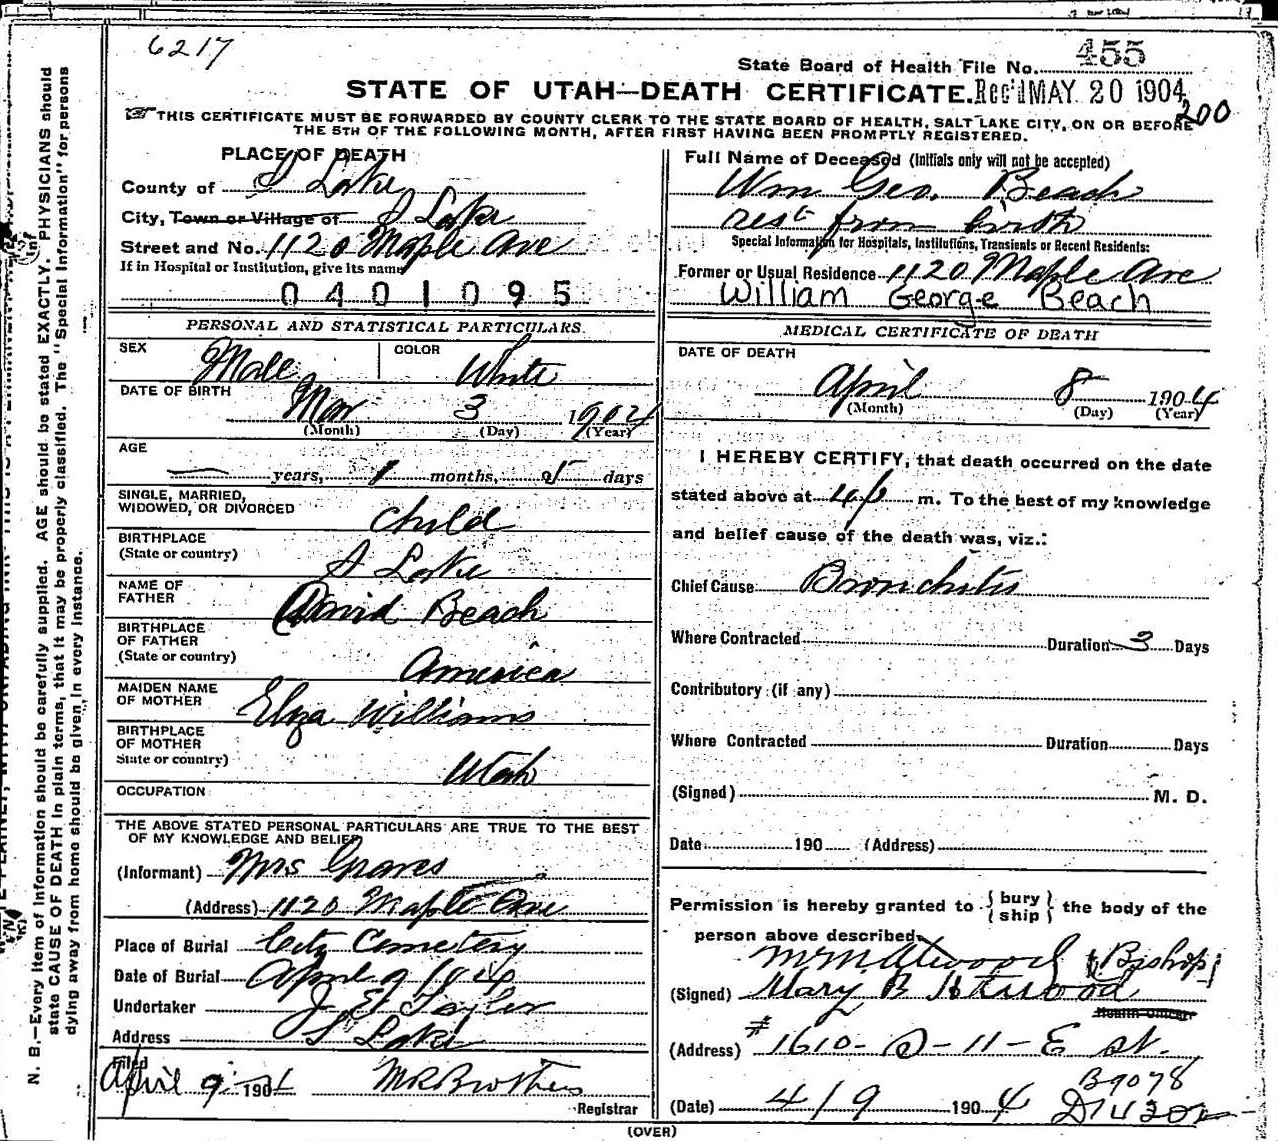 6217
State Board of Health File No. 455
STATE OF UTAH—DEATH CERTIFICATE. Rec'd MAY 20 1904
200
THIS CERTIFICATE MUST BE FORWARDED BY COUNTY CLERK TO THE STATE BOARD OF HEALTH, SALT LAKE CITY, ON OR BEFORE
THE 5TH OF THE FOLLOWING MONTH, AFTER FIRST HAVING BEEN PROMPTLY REGISTERED.
PLACE OF DEATH
County of S Lake
City, Town or Village of S Lake
Street and No. 1120 Maple Ave
If in Hospital or Institution, give its name
0401095
Full Name of Deceased (Initials only will not be accepted)
Wm Geo. Beach
rest from birth
Special Information for Hospitals, Institutions, Transients or Recent Residents:
Former or Usual Residence 1120 Maple Ave
William George Beach
PERSONAL AND STATISTICAL PARTICULARS.
SEX Male COLOR White
DATE OF BIRTH
Mar 3 1904
(Month) (Day) (Year)
AGE
— years, 1 months, 5 days
SINGLE, MARRIED,
WIDOWED, OR DIVORCED child
BIRTHPLACE
(State or country) S Lake
NAME OF
FATHER David Beach
BIRTHPLACE
OF FATHER
(State or country) America
MAIDEN NAME
OF MOTHER Eliza Williams
BIRTHPLACE
OF MOTHER
State or country) Utah
OCCUPATION
THE ABOVE STATED PERSONAL PARTICULARS ARE TRUE TO THE BEST
OF MY KNOWLEDGE AND BELIEF
(Informant) Mrs Graves
(Address) 1120 Maple Ave
Place of Burial City Cemetery
Date of Burial April 9 1904
Undertaker J E Taylor
Address S Lake
Filed
April 9 1904 M R Brothers
Registrar
MEDICAL CERTIFICATE OF DEATH
DATE OF DEATH
April 8 1904
(Month) (Day) (Year)
I HEREBY CERTIFY, that death occurred on the date
stated above at 4 p m. To the best of my knowledge
and belief cause of the death was, viz.:
Chief Cause Bronchitis
Where Contracted Duration 3 Days
Contributory (if any)
Where Contracted Duration Days
(Signed) M. D.
Date 190 (Address)
Permission is hereby granted to { bury ship } the body of the
person above described
M M Atwood Bishop
(Signed) Mary B Atwood
Health Officer
(Address) # 1610- S-11-E St.
(Date) 4/9 1904
B9078
(OVER)
N. B.—Every item of information should be carefully supplied. AGE should be stated EXACTLY. PHYSICIANS should
state CAUSE OF DEATH in plain terms, that it may be properly classified. The "Special Information" for persons
dying away from home should be given in every instance.